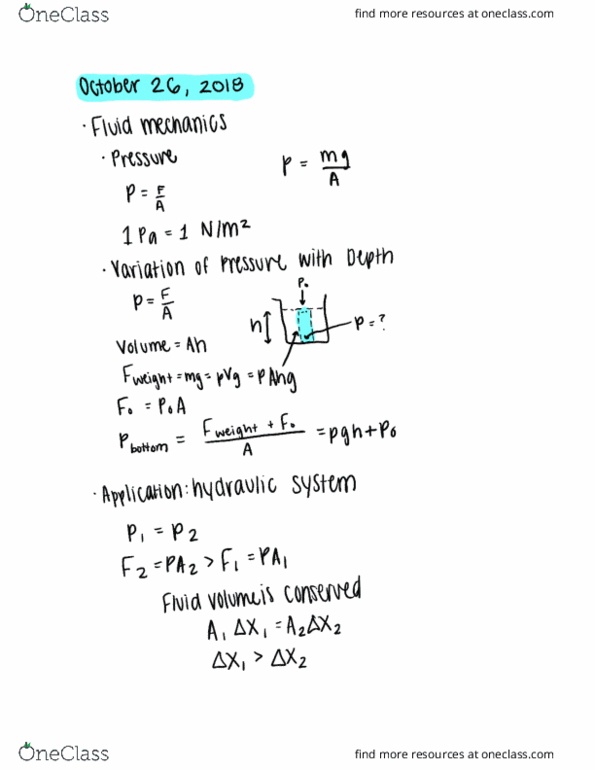 OneClass
find more resources at oneclass.com
October 26, 2018
· Fluid mechanics
· Pressure
P = mg/A
P = F/A
1 Pa = 1 N/m²
· Variation of Pressure with Depth
P = F/A
P₀
h
P = ?
Volume = Ah
Fweight = mg = ρVg = ρAhg
F₀ = P₀A
Pbottom = (Fweight + F₀)/A = ρgh + P₀
· Application: hydraulic system
P₁ = P₂
F₂ = PA₂ > F₁ = PA₁
Fluid volume is conserved
A₁ ΔX₁ = A₂ΔX₂
ΔX₁ > ΔX₂
OneClass
find more resources at oneclass.com